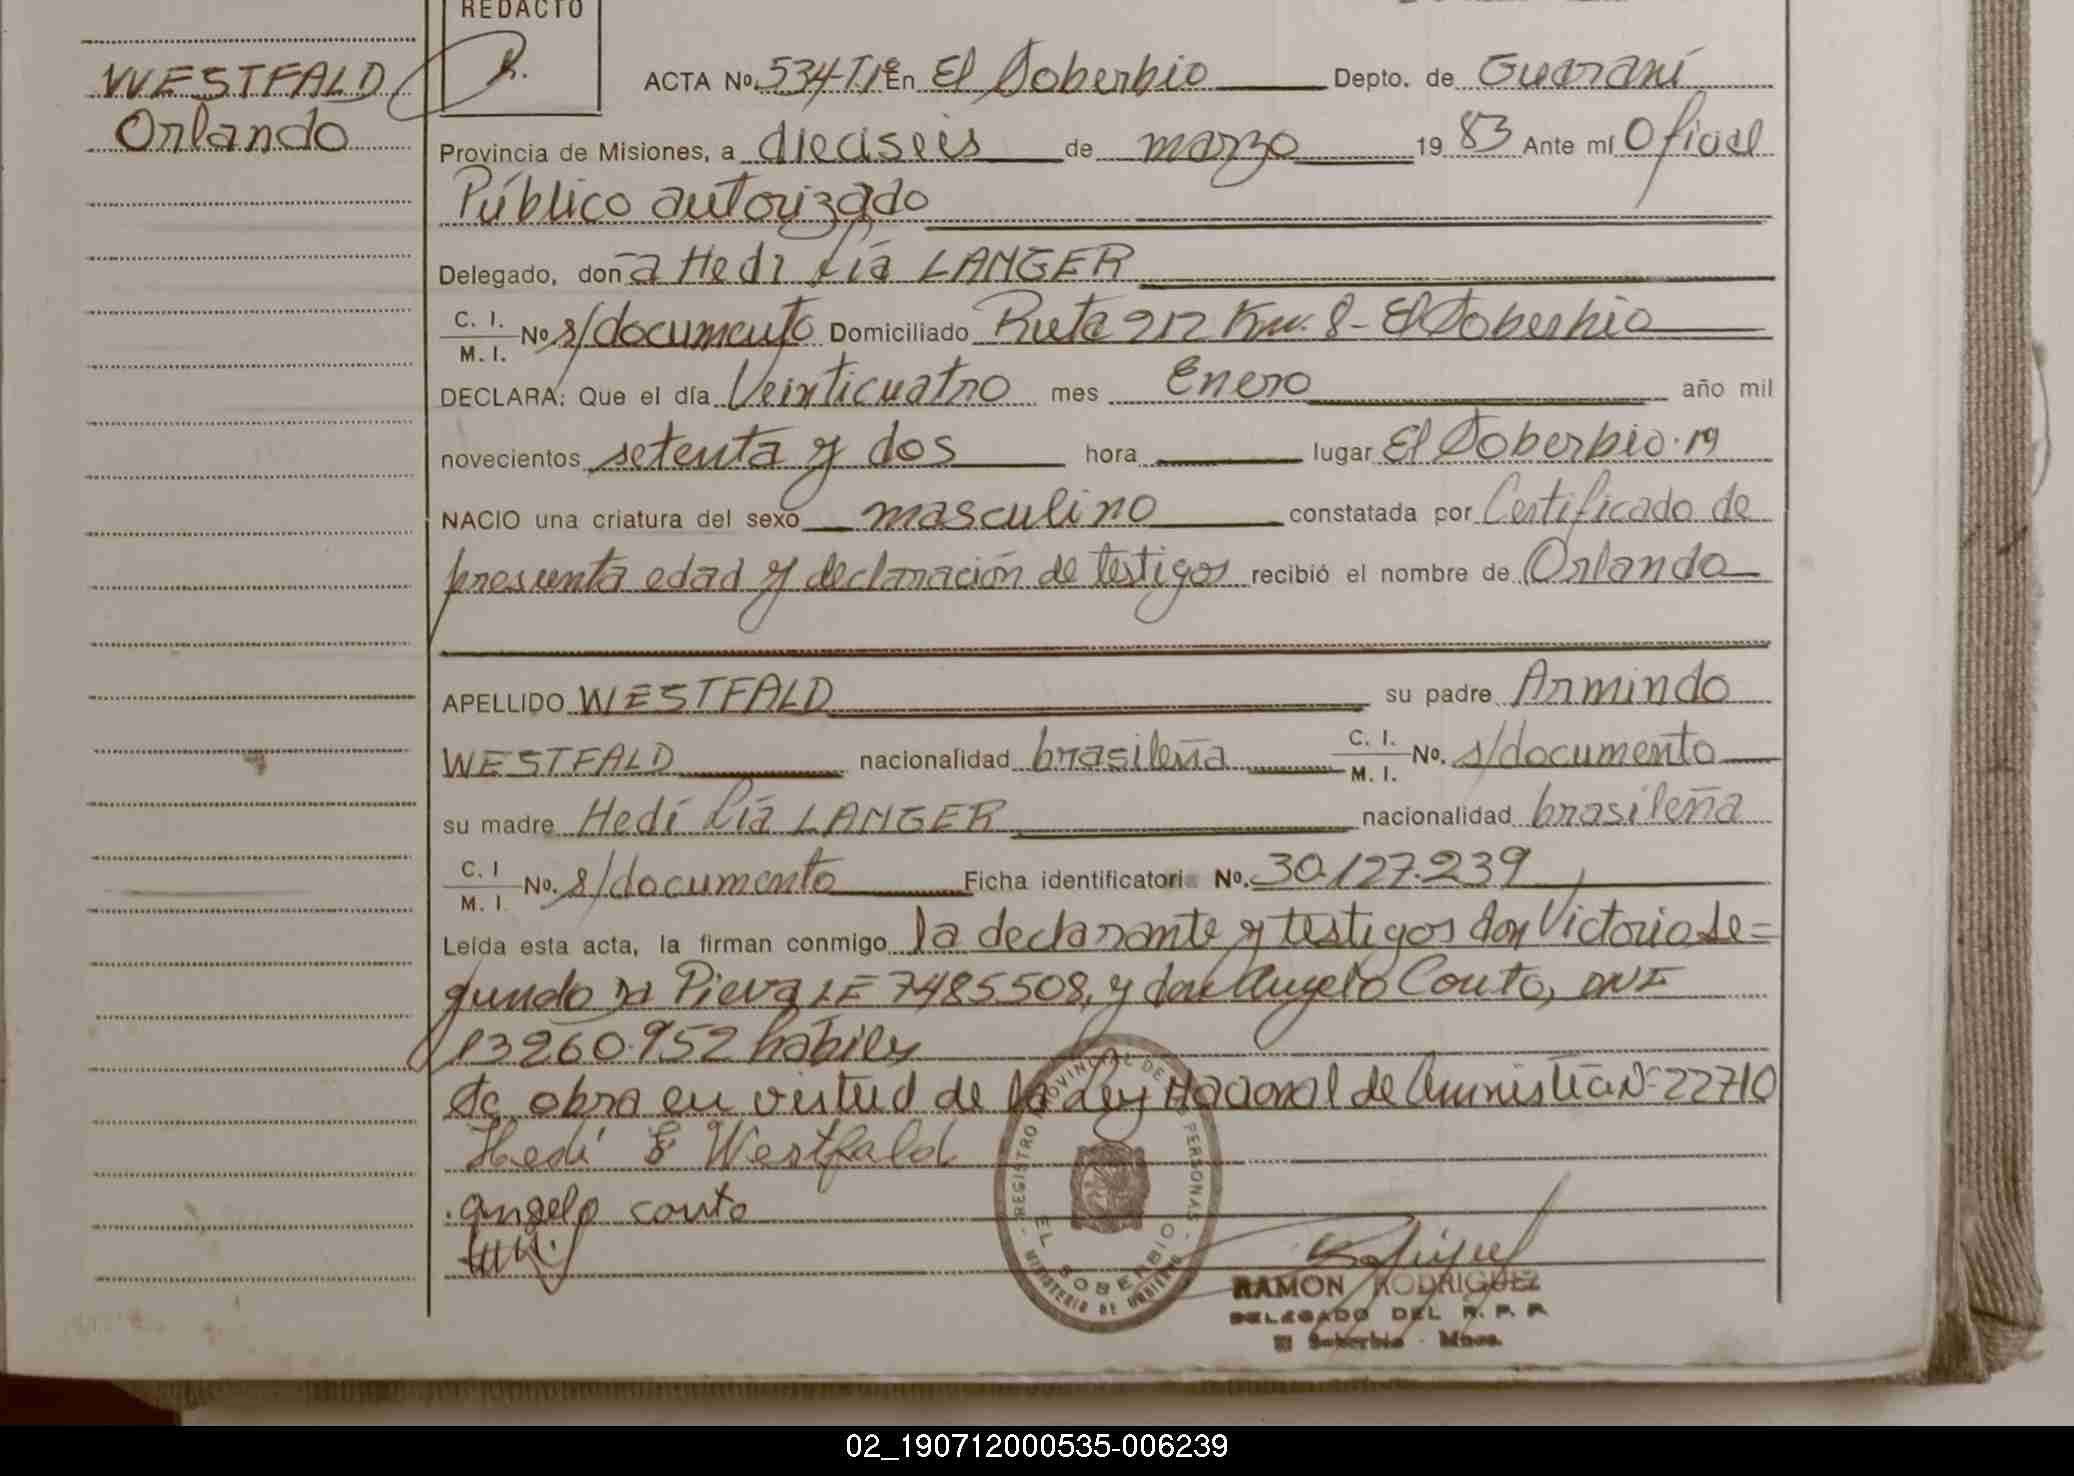 REDACTO
WESTFALD
Orlando
ACTA No. 534-Tº1º En El Soberbio Depto. de Guaraní
Provincia de Misiones, a dieciseis de marzo 1983 Ante mí Oficial
Público autorizado
Delegado, doña Hedi Lía LANGER
C. I.
M. I. No s/documento Domiciliado Ruta 212 Km. 8- El Soberbio
DECLARA: Que el día Veinticuatro mes Enero año mil
novecientos setenta y dos hora lugar El Soberbio.
NACIO una criatura del sexo masculino constatada por Certificado de
presunta edad y declaración de testigos recibió el nombre de Orlando
APELLIDO WESTFALD su padre Armindo
WESTFALD nacionalidad brasileña C. I. M. I. No. s/documento
su madre Hedí Lía LANGER nacionalidad brasileña
C. I M. I. No. s/documento Ficha identificatori No. 30.127.239
Leída esta acta, la firman conmigo la declarante y testigos don Victorio Se=
gundo Da Pieva LE 7485508, y don Angelo Couto, DNI
13260.952 habiles
Se obra en virtud de la Ley Nacional de Amnistía Nº 22710
Hedi Westfald
angelo couto
REGISTRO PROVINCIAL DE PERSONAS
EL SOBERBIO
MINISTERIO DE GOBIERNO
RAMON RODRIGUEZ
DELEGADO DEL R. P. P.
El Soberbio - Mnes.
02_190712000535-006239